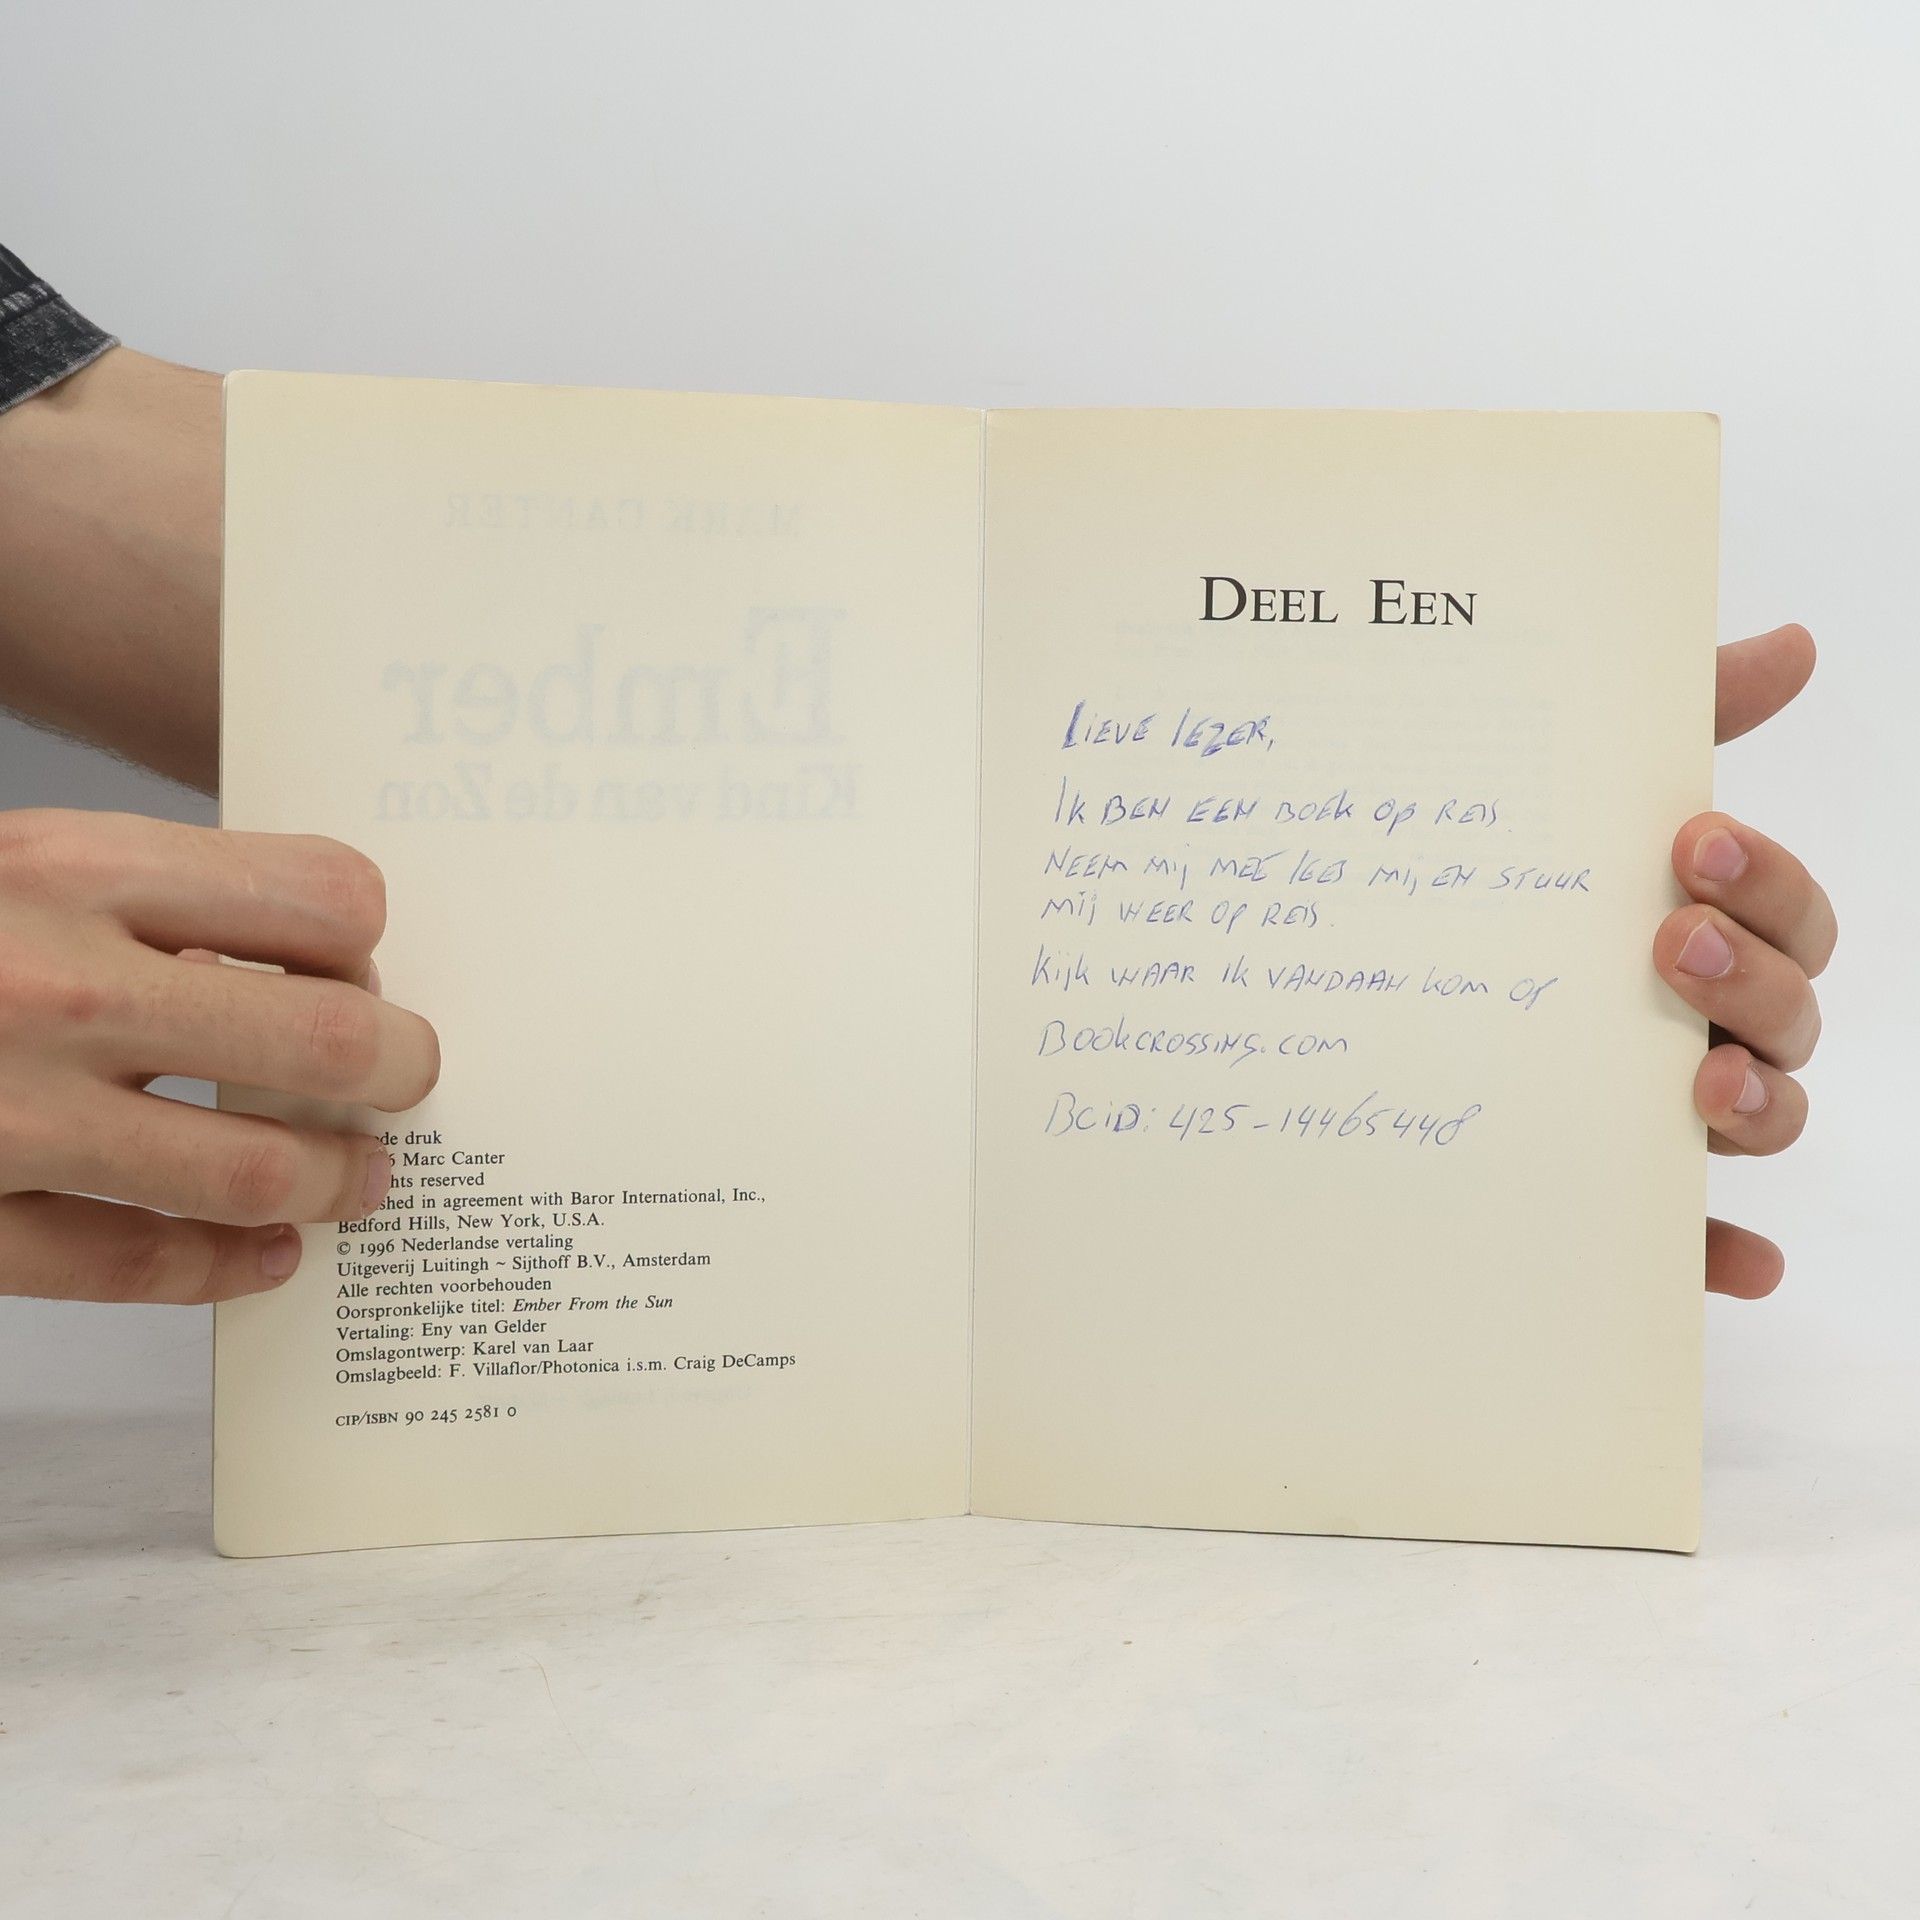 de druk
6 Marc Canter
hts reserved
shed in agreement with Baror International, Inc.,
Bedford Hills, New York, U.S.A.
© 1996 Nederlandse vertaling
Uitgeverij Luitingh ~ Sijthoff B.V., Amsterdam
Alle rechten voorbehouden
Oorspronkelijke titel: Ember From the Sun
Vertaling: Eny van Gelder
Omslagontwerp: Karel van Laar
Omslagbeeld: F. Villaflor/Photonica i.s.m. Craig DeCamps
CIP/ISBN 90 245 2581 0
DEEL EEN
Lieve lezer,
Ik ben een boek op reis.
Neem mij mee lees mij en stuur
mij weer op reis.
Kijk waar ik vandaan kom op
Bookcrossing.com
BCiD: 425-14465448
MARK CANTER
Ember
Kind van de Zon